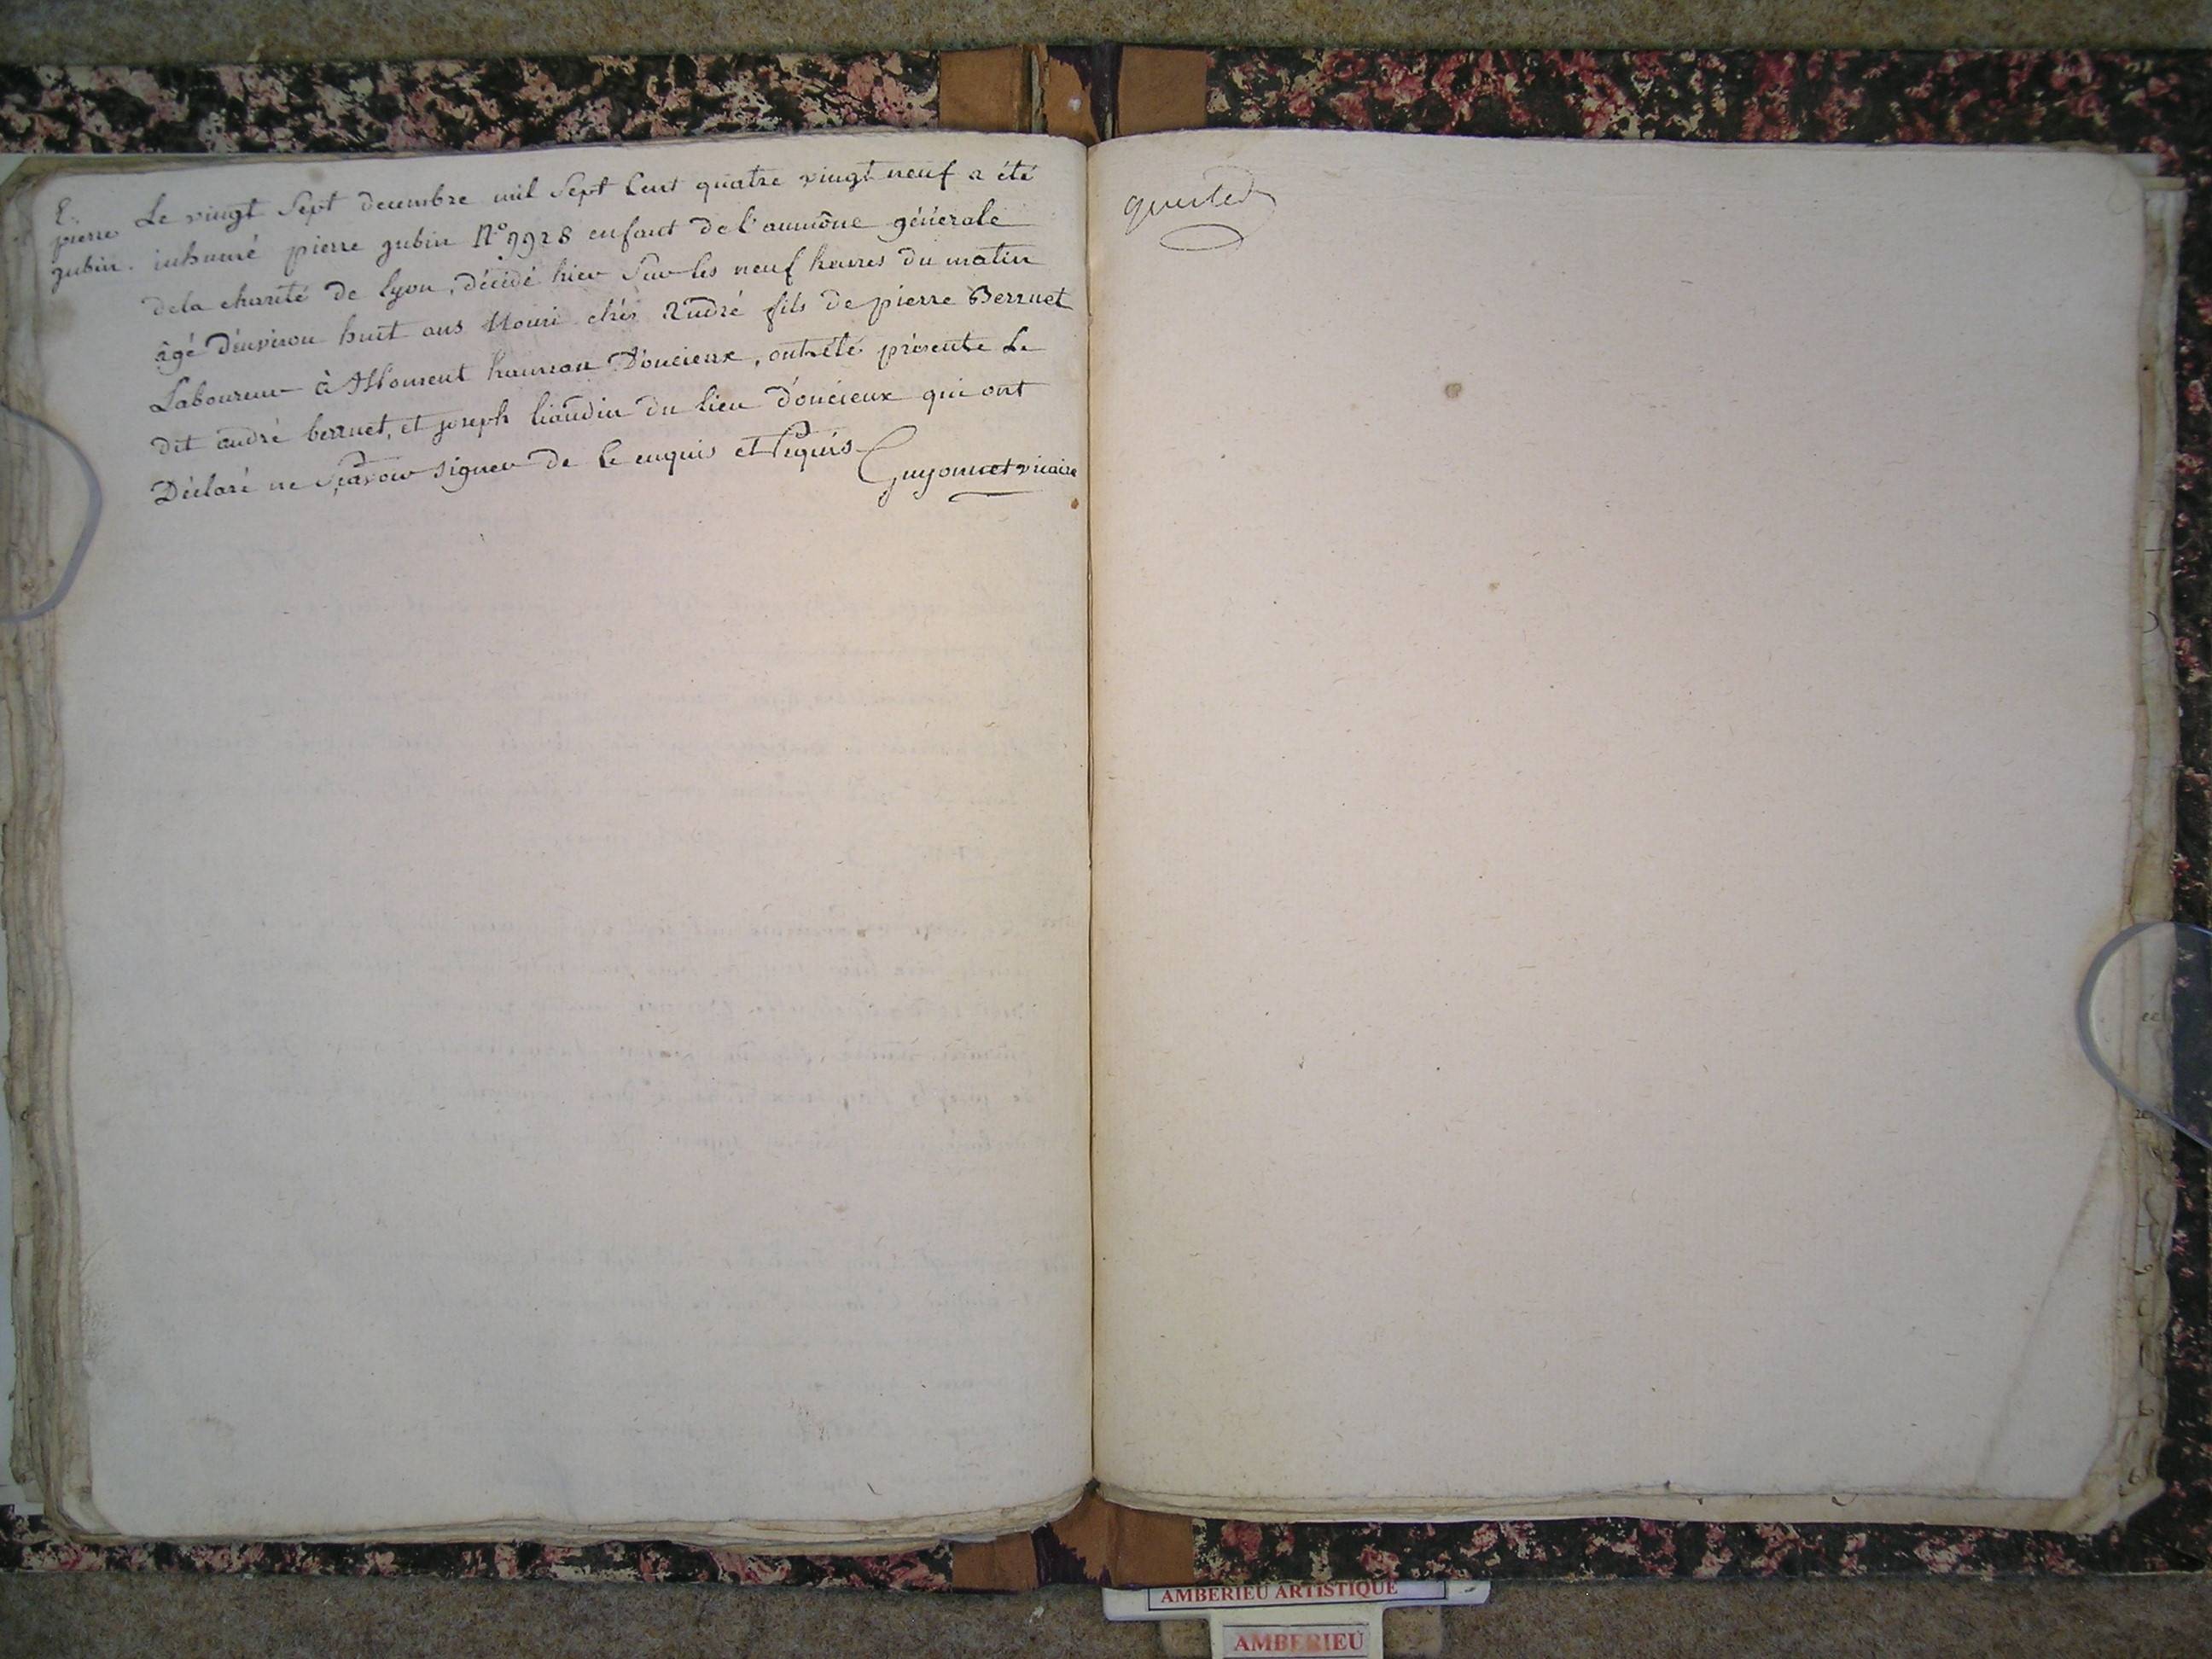 E.
pierre
gubin.
Le vingt Sept decembre mil Sept Cent quatre vingt neuf a été
inhumé pierre gubin N° 9928 enfant de l'aumône générale
dela charité de Lyon, décédé hier Sur les neuf heures du matin
âgé d'environ huit ans Nouri chés André fils de pierre Berruet
Laboureur à Montent hameau D'oncieux, ont été présents Le
dit andré berruet, et joseph liaudin du lieu d'oncieux qui ont
Déclaré ne Sçavoir signer de Ce enquis et Requis
Guyonnet vicaire
AMBERIEU ARTISTIQUE
AMBERIEU